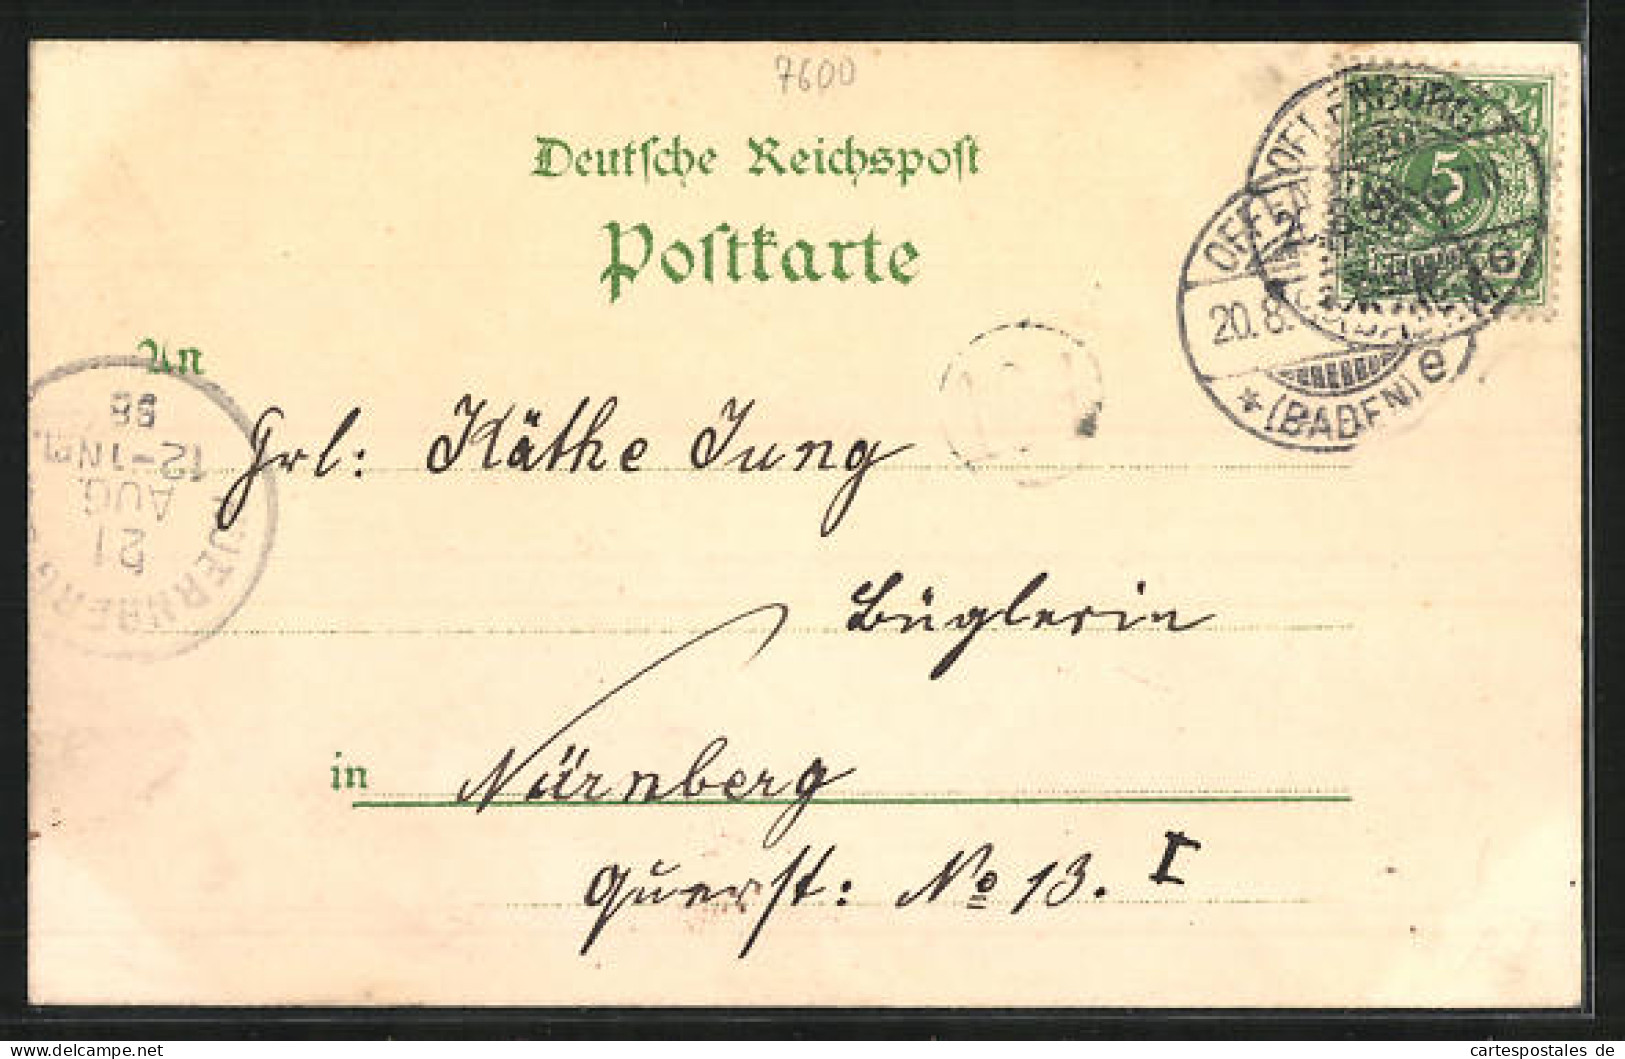 7600
Deutsche Reichspost
Postkarte
5
OFFENBURG
OFFENBURG
20.8.
* (BADEN) e
An
Frl: Käthe Jung
NUERNBERG
21
AUG.
12-1Nm.
98
Büglerin
in Nürnberg
Querst: No 13. I
cartespostales de